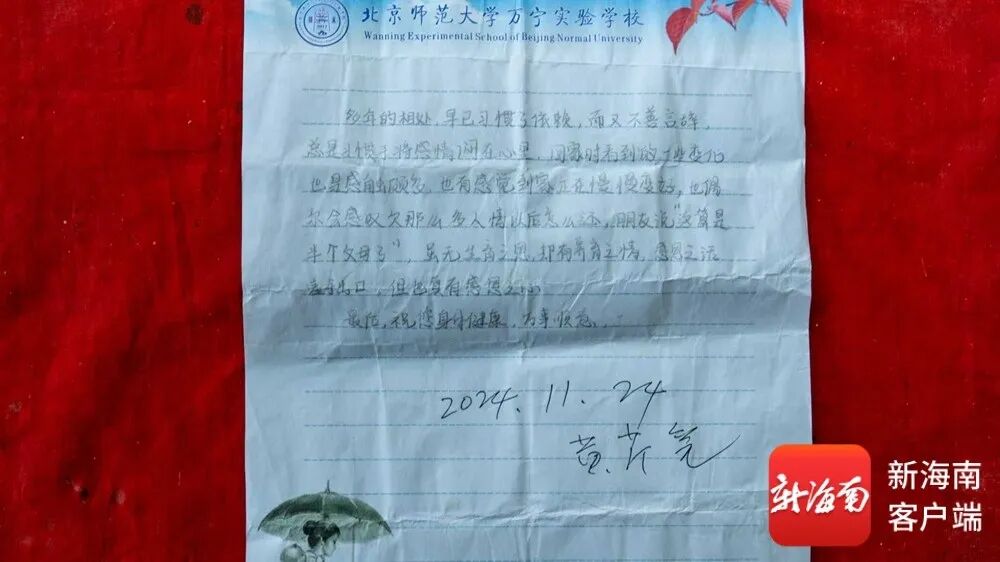 北京师范大学万宁实验学校
Wanning Experimental School of Beijing Normal University
多年的相处，早已习惯了依赖，而又不善言辞，
总是习惯于将感情闷在心里，回家时看到的一些变化
也是感触颇多，也有感觉到家正在慢慢变好，也偶
尔会感叹欠那么多人情以后怎么还，朋友说“这算是
半个父母了”，虽无生育之恩，却有养育之情，感恩之话
难于出口，但也复有感恩之心
最后，祝您身体健康，万事顺意。
2024.11.24
黄芹
新海南
新海南
客户端